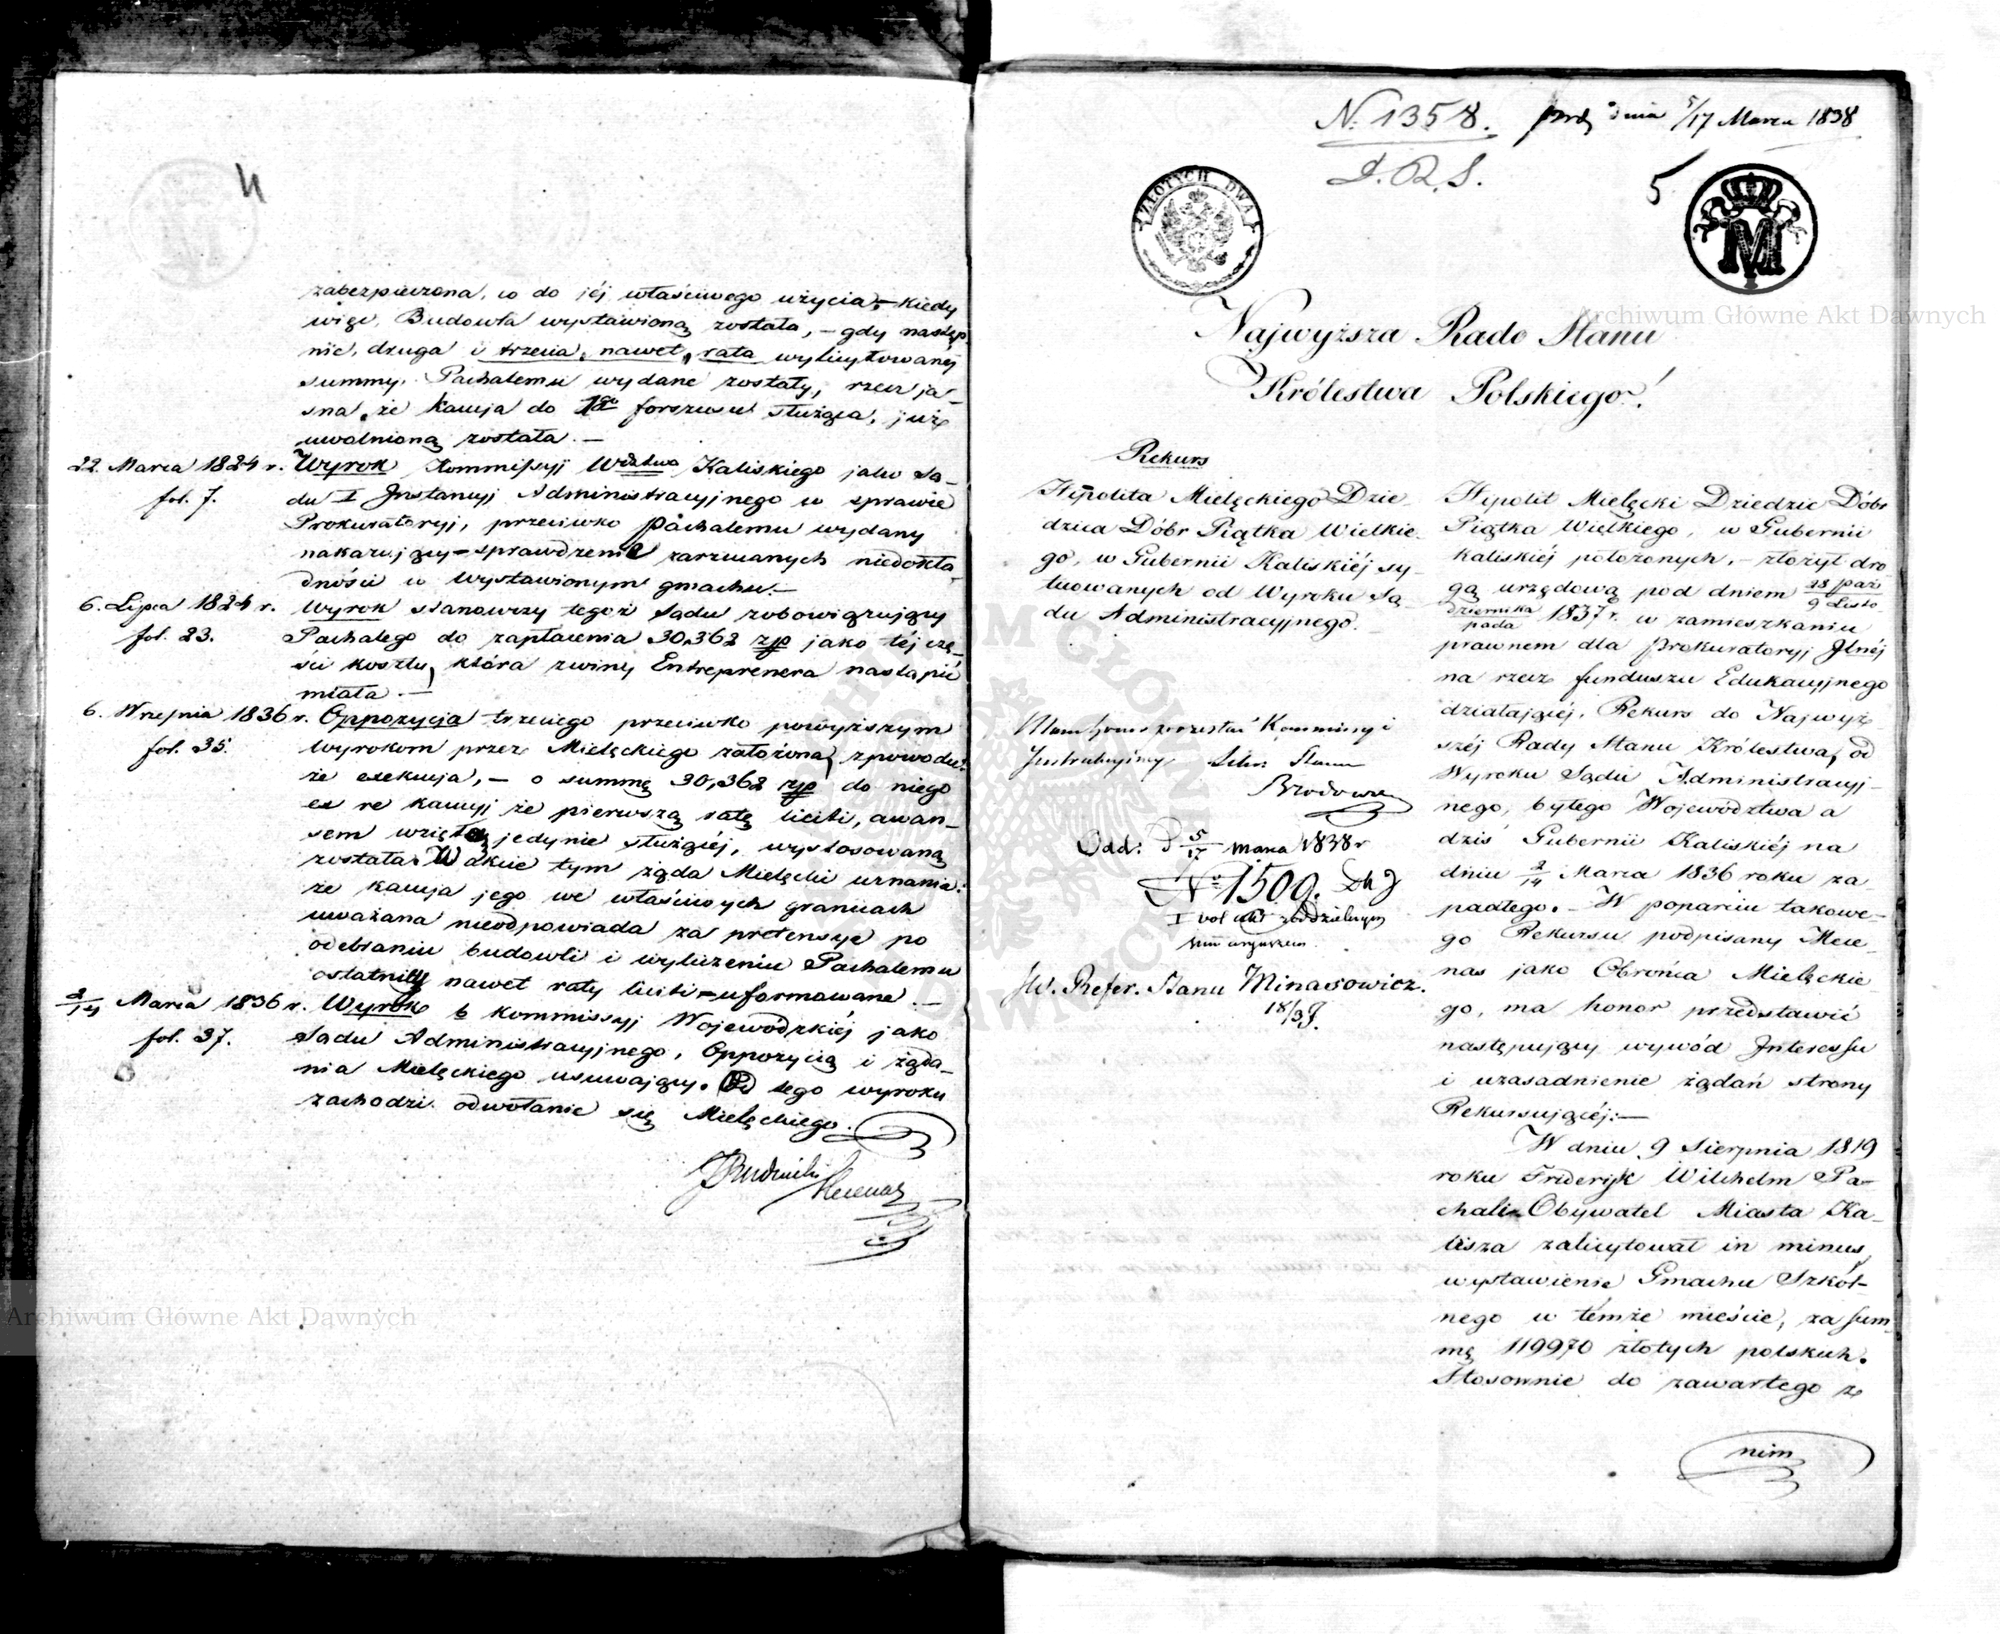 4
zabezpieczona, co do jéj właściwego użycia, – kiedy
więc, Budowla wystawioną została, – gdy następ
nie, druga i trzecia, nawet, rata wylicytowanéj
summy, Pachalemu wydane zostały, rzecz ja–
sna, że kaucja do 1go forszusu służąca, już
uwolnioną została. –
22. Marca 1824 r. Wyrok Kommissyji Wództwa Kaliskiego jako Są–
fol. 7. du I Instancyj Administracyjnego w sprawie
Prokuratoryj, przeciwko Pachalemu wydany
nakazujący – sprawdzenie zarzucanych niedokła–
dności w wystawionym gmachu. –
6. Lipca 1824 r. Wyrok stanowczy tegoż Sądu zobowiązujący
fol. 23. Pachalego do zapłacenia 30,362 zp jako téj czę–
ści kosztu, która z winy Entreprenera nastąpić
miała. –
6. Września 1836 r. Oppozycja trzeciego przeciwko powyższym
fol. 35. wyrokom przez Mielęckiego założona, z powodu:
że exekucja, – o summę 30,362 zp do niego
ex re kaucyj że pierwszą ratę liciti, awan–
sem wziętą, jedynie służącéj, wystosowaną
została. W akcie tym żąda Mielęcki uznania:
że kaucja jego we właściwych granicach
uważana nieodpowiada za pretensye po
odebraniu budowli i wyliczeniu Pachalemu
ostatniéj nawet raty liciti – uformowane. –
2/14 Marca 1836 r. Wyrok b Kommissyj Wojewódzkiéj jako
fol. 37. Sądu Administracyjnego, Oppozycią i żąda–
nia Mielęckiego usuwający. Od tego wyroku
zachodzi odwołanie się Mielęckiego.
Mecenas
N. 1358. prez dnia 5/17 Marca 1838
D.R.S.
5
ZŁOTYCH DWA
M
Najwyższa Rado Stanu
Królestwa Polskiego!
Rekurs
Hipolita Mielęckiego Dzie–
dzica Dóbr Piątka Wielkie–
go, w Gubernii Kaliskiéj sy–
tuowanych od Wyroku Są–
du Administracyjnego.
Kommissyi
Instrukcyjnéj Sekr. Stanu
Odd: d 5/17 marca 1838 r
No 1509.
JW. Refer. Stanu Minasowicz.
18/3
Hipolit Mielęcki Dziedzic Dóbr
Piątka Wielkiego, w Gubernii
Kaliskiéj położonych, – złożył dro
gą urzędową pod dniem 28 Paź
dziernika/9 Listo
pada 1837 r. w zamieszkaniu
prawnem dla Prokuratoryj Jlnéj
na rzecz funduszu Edukacyjnego
działającéj, Rekurs do Najwyż
széj Rady Stanu Królestwa, od
Wyroku Sądu Administracyj–
nego, byłego Województwa a
dziś Gubernii Kaliskiéj na
dniu 2/14 Marca 1836 roku za–
padłego. – W poparciu takowe–
go Rekursu podpisany Mece–
nas jako Obrońca Mielęckie–
go, ma honor przedstawić
następujący wywód Interessu
i uzasadnienie żądań strony
Rekursującéj: –
W dniu 9 Sierpnia 1819
roku Frideryk Wilhelm Pa–
chali Obywatel Miasta Ka–
lisza zalicytował in minus,
wystawienie Gmachu Szkól–
nego w témże mieście, za sum–
mę 119970 złotych polskich.
Stosownie do zawartego z
nim
Archiwum Główne Akt Dawnych
Archiwum Główne Akt Dawnych